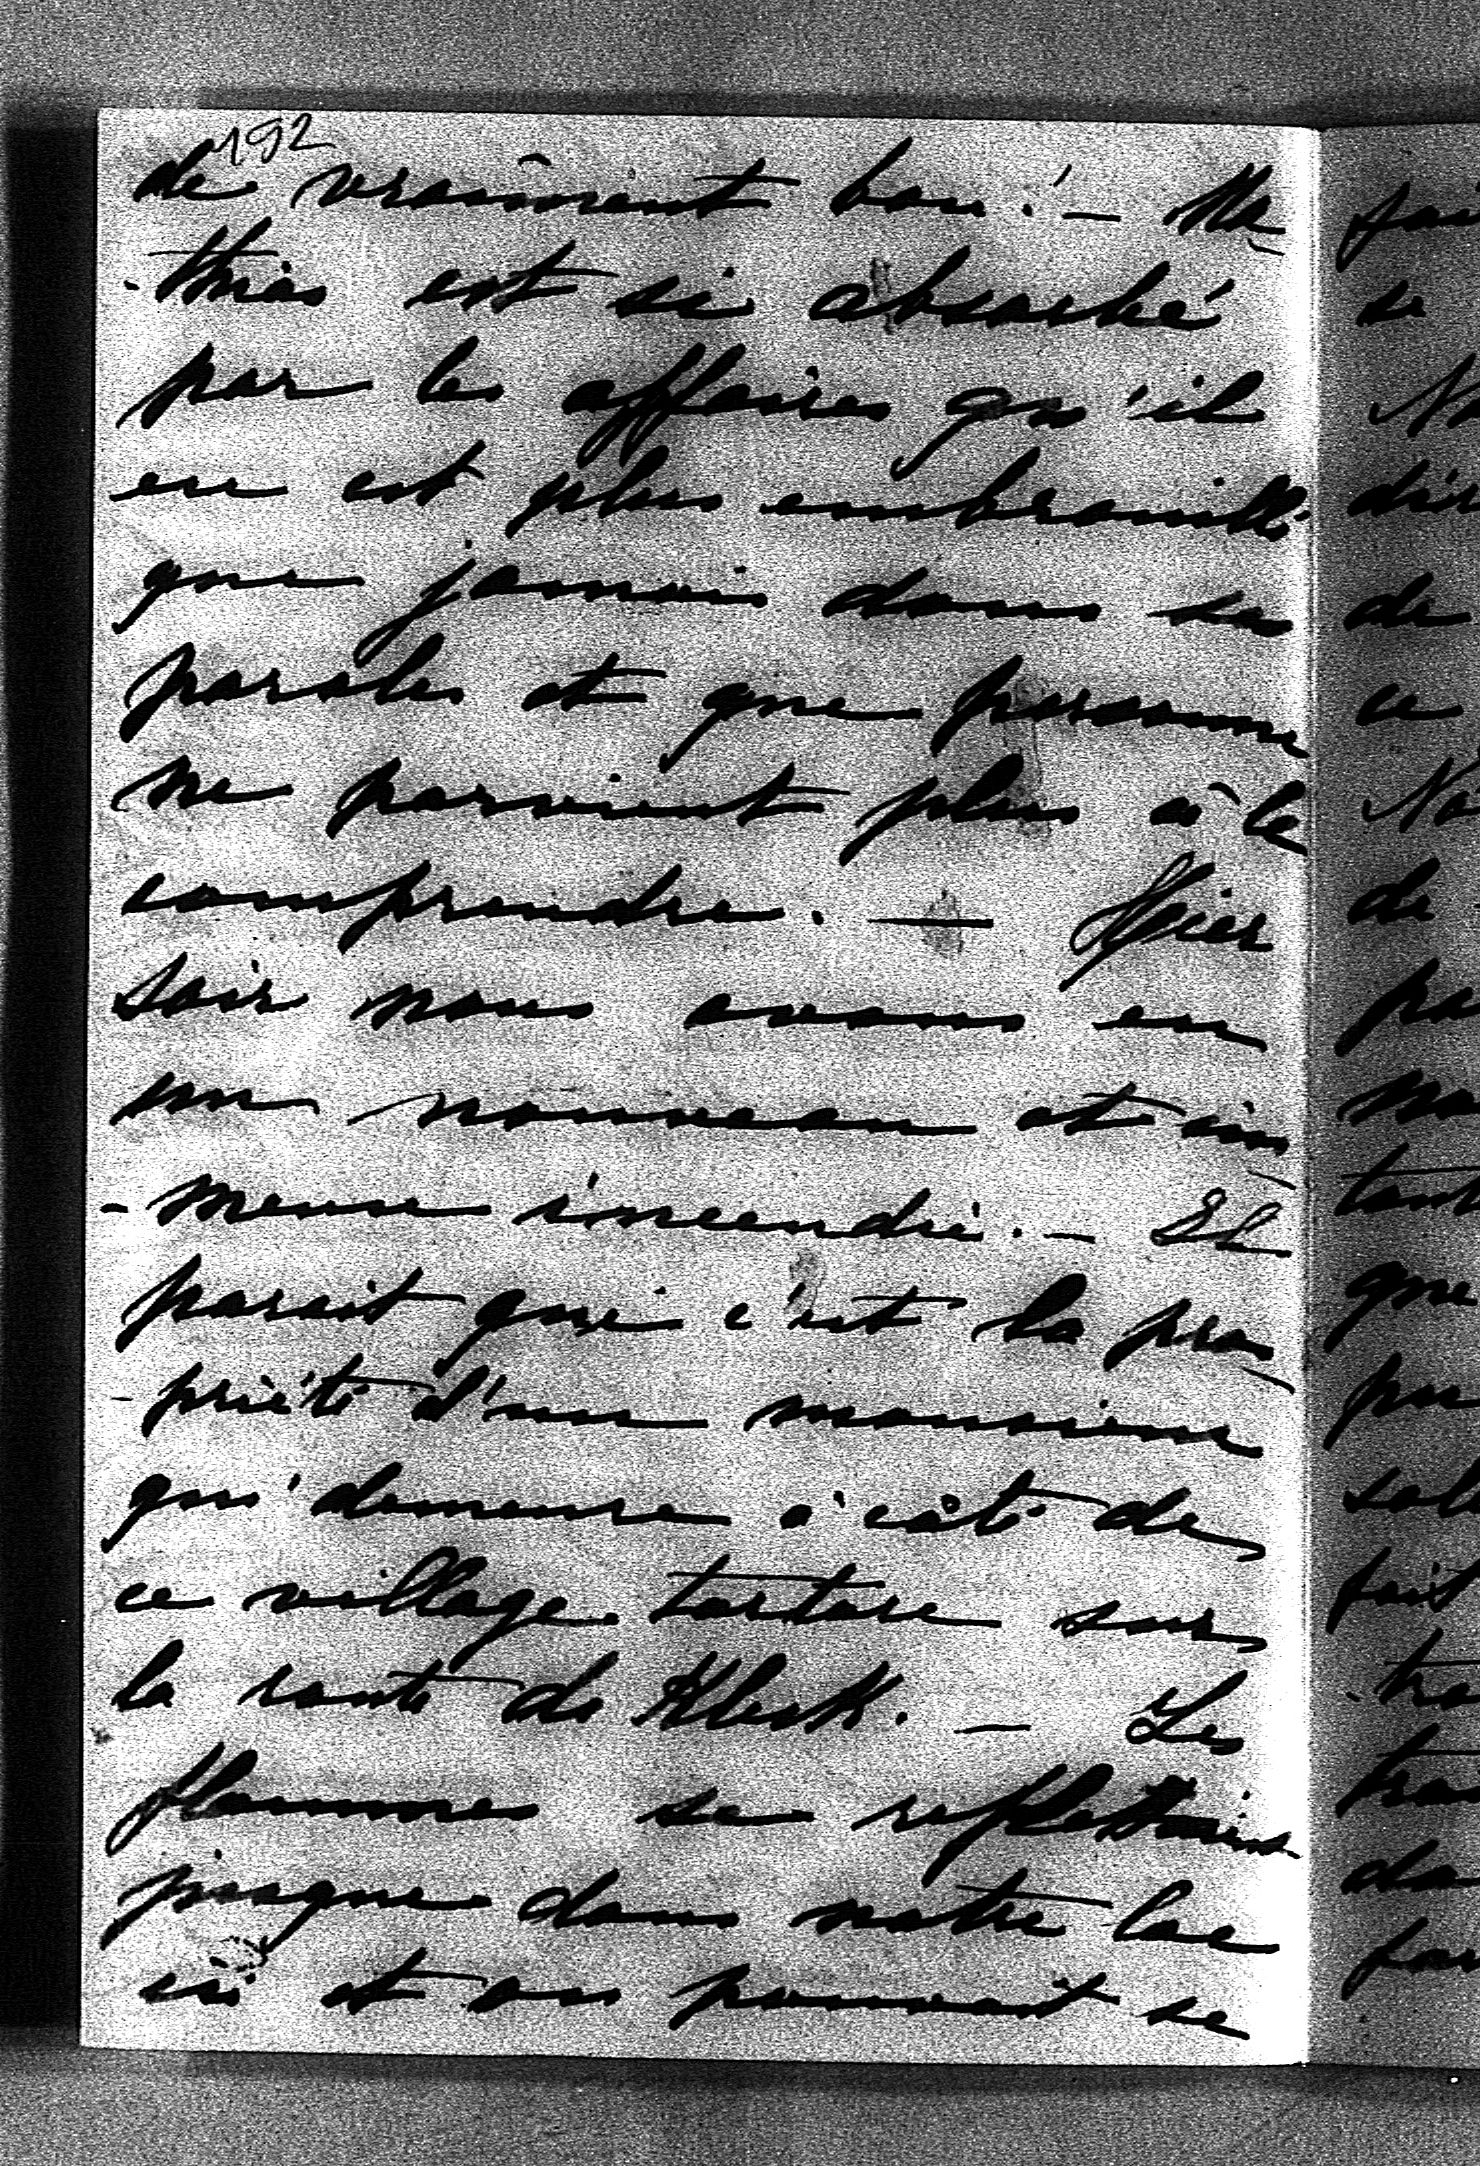 192
de vraîment bon! — Ma-
-thias est si absorbé
par les affaires qu'il
en est plus embrouillé
que jamais dans ses
paroles et que personne
ne parvient plus à le
comprendre. — Hier
soir nous avons eu
un nouveau et im-
-mense incendie. — Il
parait que c'est la pro-
-priété d'un monsieur
qui demeure à côté de
ce village tartare sur
la route de Kletsk. — Les
flammes se reflettaient
jusque dans notre lac
ici et on pouvait se